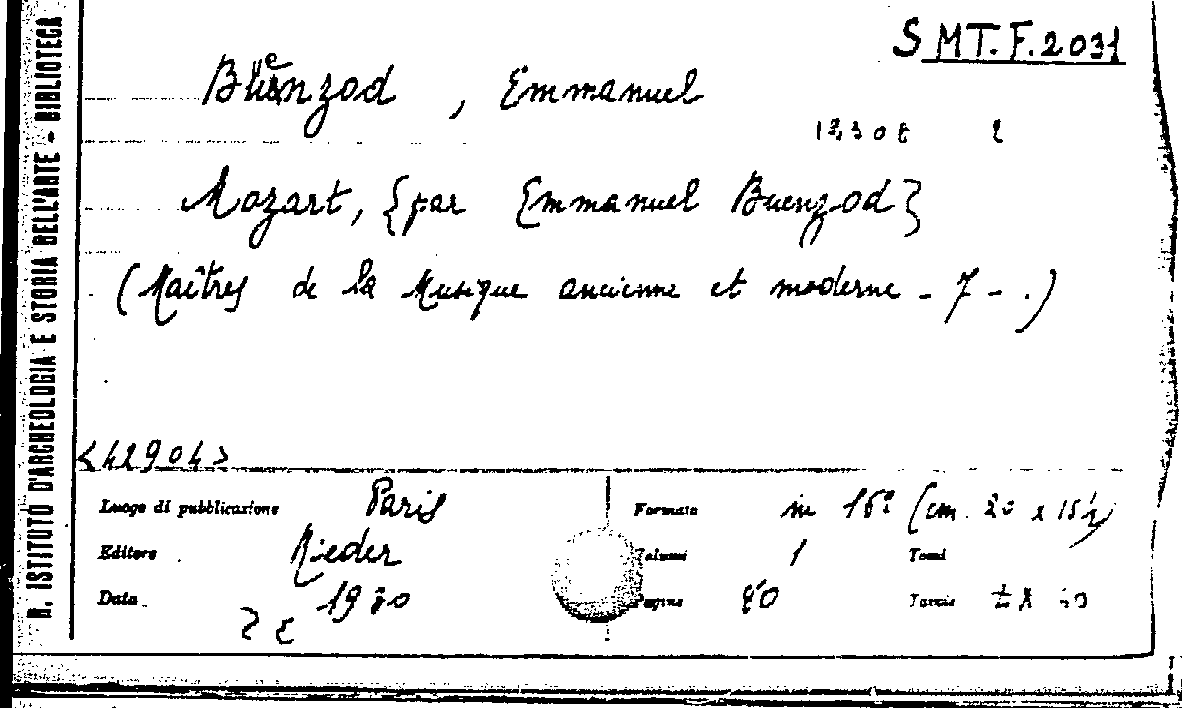 R. ISTITUTO D'ARCHEOLOGIA E STORIA DELL'ARTE - BIBLIOTECA
S MT. F. 2031
Buenzod, Emmanuel
Mozart, {par Emmanuel Buenzod}
(Maîtres de la Musique ancienne et moderne - 7 - .)
<42904>
Luogo di pubblicazione Paris
Formato in 16º (cm. 20 x 15½)
Editore Rieder
Volumi 1 Tomi
Data 1930
Pagine 80 Tavole 40